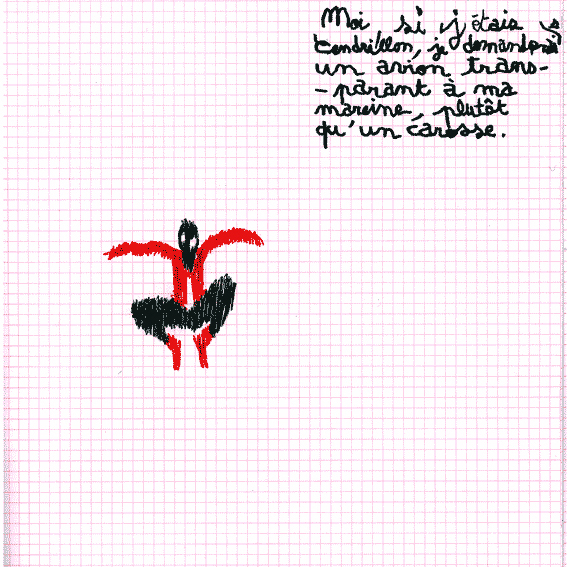 Moi si j'étais
Cendrillon, je demanderais
un avion trans-
-parant à ma
mareine, plutôt
qu'un carosse.